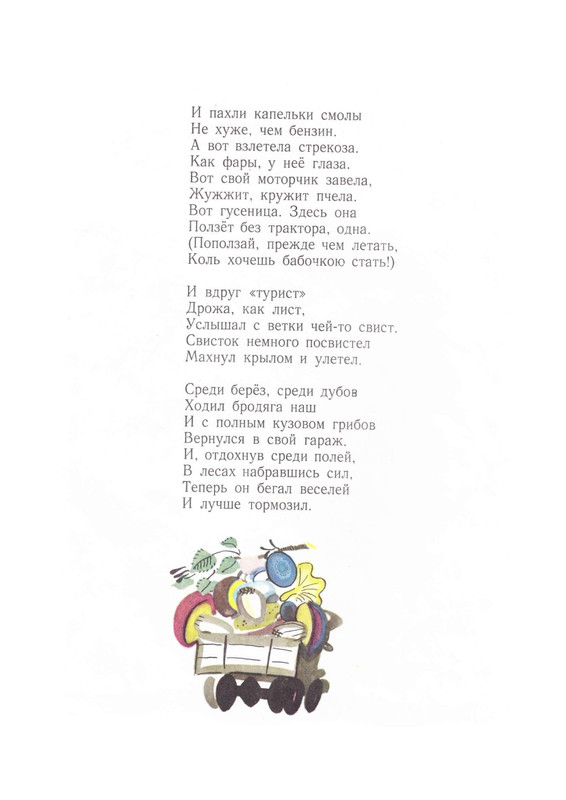 И пахли капельки смолы
Не хуже, чем бензин.
А вот взлетела стрекоза.
Как фары, у неё глаза.
Вот свой моторчик завела,
Жужжит, кружит пчела.
Вот гусеница. Здесь она
Ползёт без трактора, одна.
(Поползай, прежде чем летать,
Коль хочешь бабочкою стать!)
И вдруг «турист»
Дрожа, как лист,
Услышал с ветки чей-то свист.
Свисток немного посвистел
Махнул крылом и улетел.
Среди берёз, среди дубов
Ходил бродяга наш
И с полным кузовом грибов
Вернулся в свой гараж.
И, отдохнув среди полей,
В лесах набравшись сил,
Теперь он бегал веселей
И лучше тормозил.